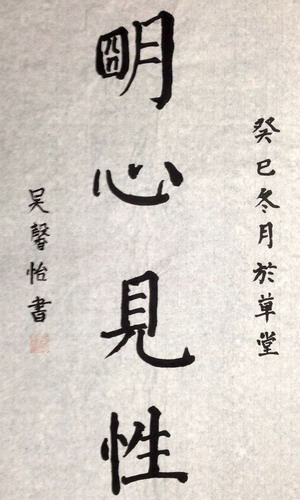 癸巳冬月於草堂
朙心見性
吴馨怡書